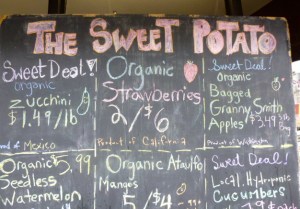 THE SWEET POTATO
Sweet Deal!
Organic
Zucchini
$1.49/lb
of Mexico
Organic
Strawberries
2/$6
Product of California
Sweet Deal!
Organic
Bagged
Granny Smith
Apples $3.49
Product of Washington
Organic 5.99
Seedless
Watermelon
Organic Ataulfo
Mangos
5/$4
Sweet Deal!
Local, Hydroponic
Cucumbers